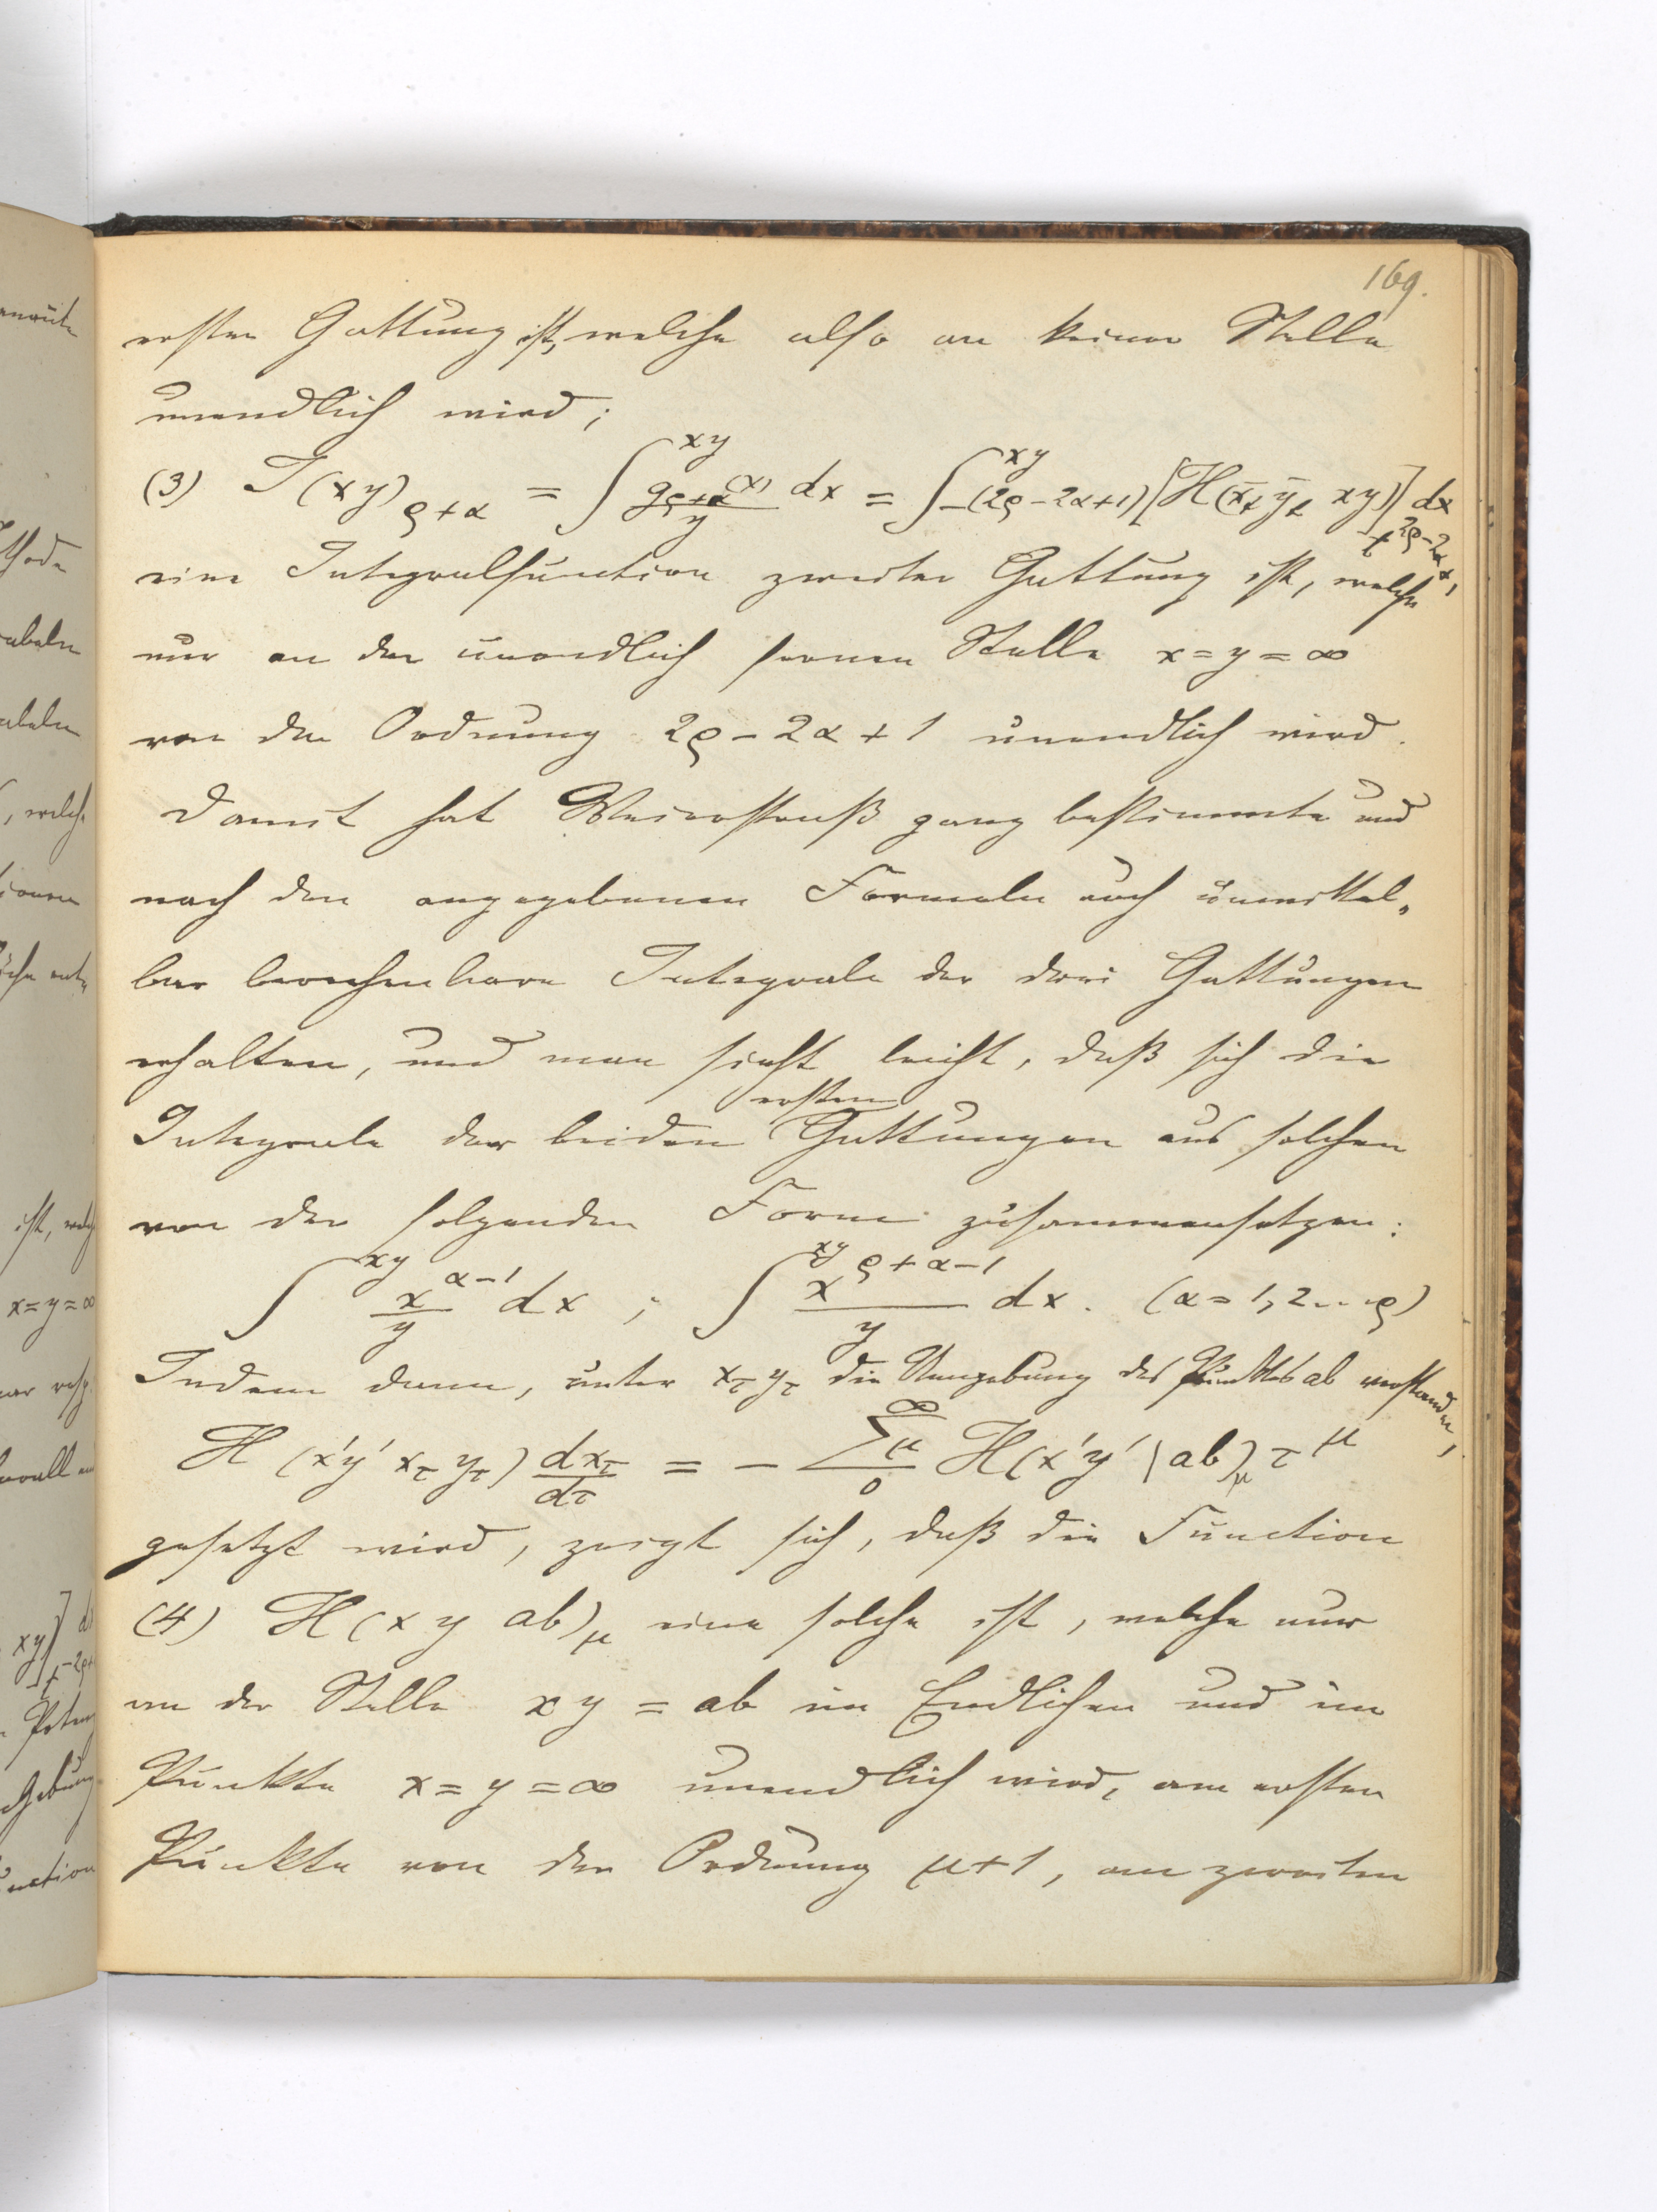 169.
ersten Gattung ist, welche also an keiner Stelle
unendlich wird;
(3) J(xy)ϱ+α = ∫^{xy} g_{ϱ+α}(x)/y dx = ∫^{xy} -(2ϱ-2α+1)[H(x̄_t ȳ_t xy)]_{t^{2ϱ-2α+1}} dx
eine Integralfunction zweiter Gattung ist, welche
nur an der unendlich fernen Stelle x=y=∞
von der Ordnung 2ϱ-2α+1 unendlich wird.
Damit hat Weierstraß ganz bestimmte und
nach den angegebenen Formeln auch unmittel„
bar berechenbare Integrale der drei Gattungen
erhalten, und man sieht leicht, daß sich die
ersten
Integrale der beiden Gattungen aus solchen
von der folgenden Form zusammensetzen:
∫^{xy} x^{α-1}/y dx ; ∫^{xy} x^{ϱ+α-1}/y dx. (α=1,2...ϱ)
Indem dann, unter x_τ y_τ die Umgebung des Punktes ab verstanden,
H(x'y' x_τ y_τ) dx_τ/dτ = - Σ_μ^∞_0 H(x'y' | ab)_μ τ^μ
gesetzt wird, zeigt sich, daß die Function
(4) H(x y ab)_μ eine solche ist, welche nur
an der Stelle xy = ab im Endlichen und im
Punkte x=y=∞ unendlich wird, am ersten
Punkte von der Ordnung μ+1, am zweiten
x=y=∞